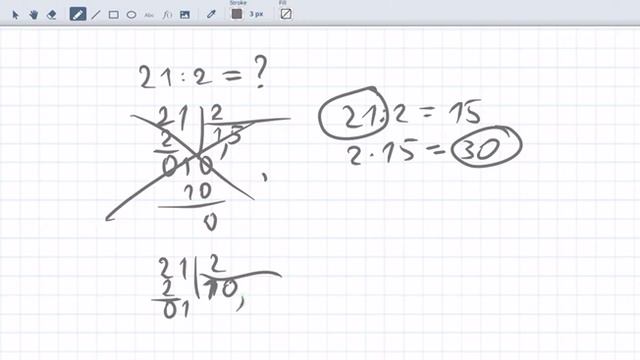 Stroke
Fill
3 px
Abc
f(x)
21:2=?
21 2
2 1,5
010
10
0
21:2=15
2·15=30
21 2
2 10,
01